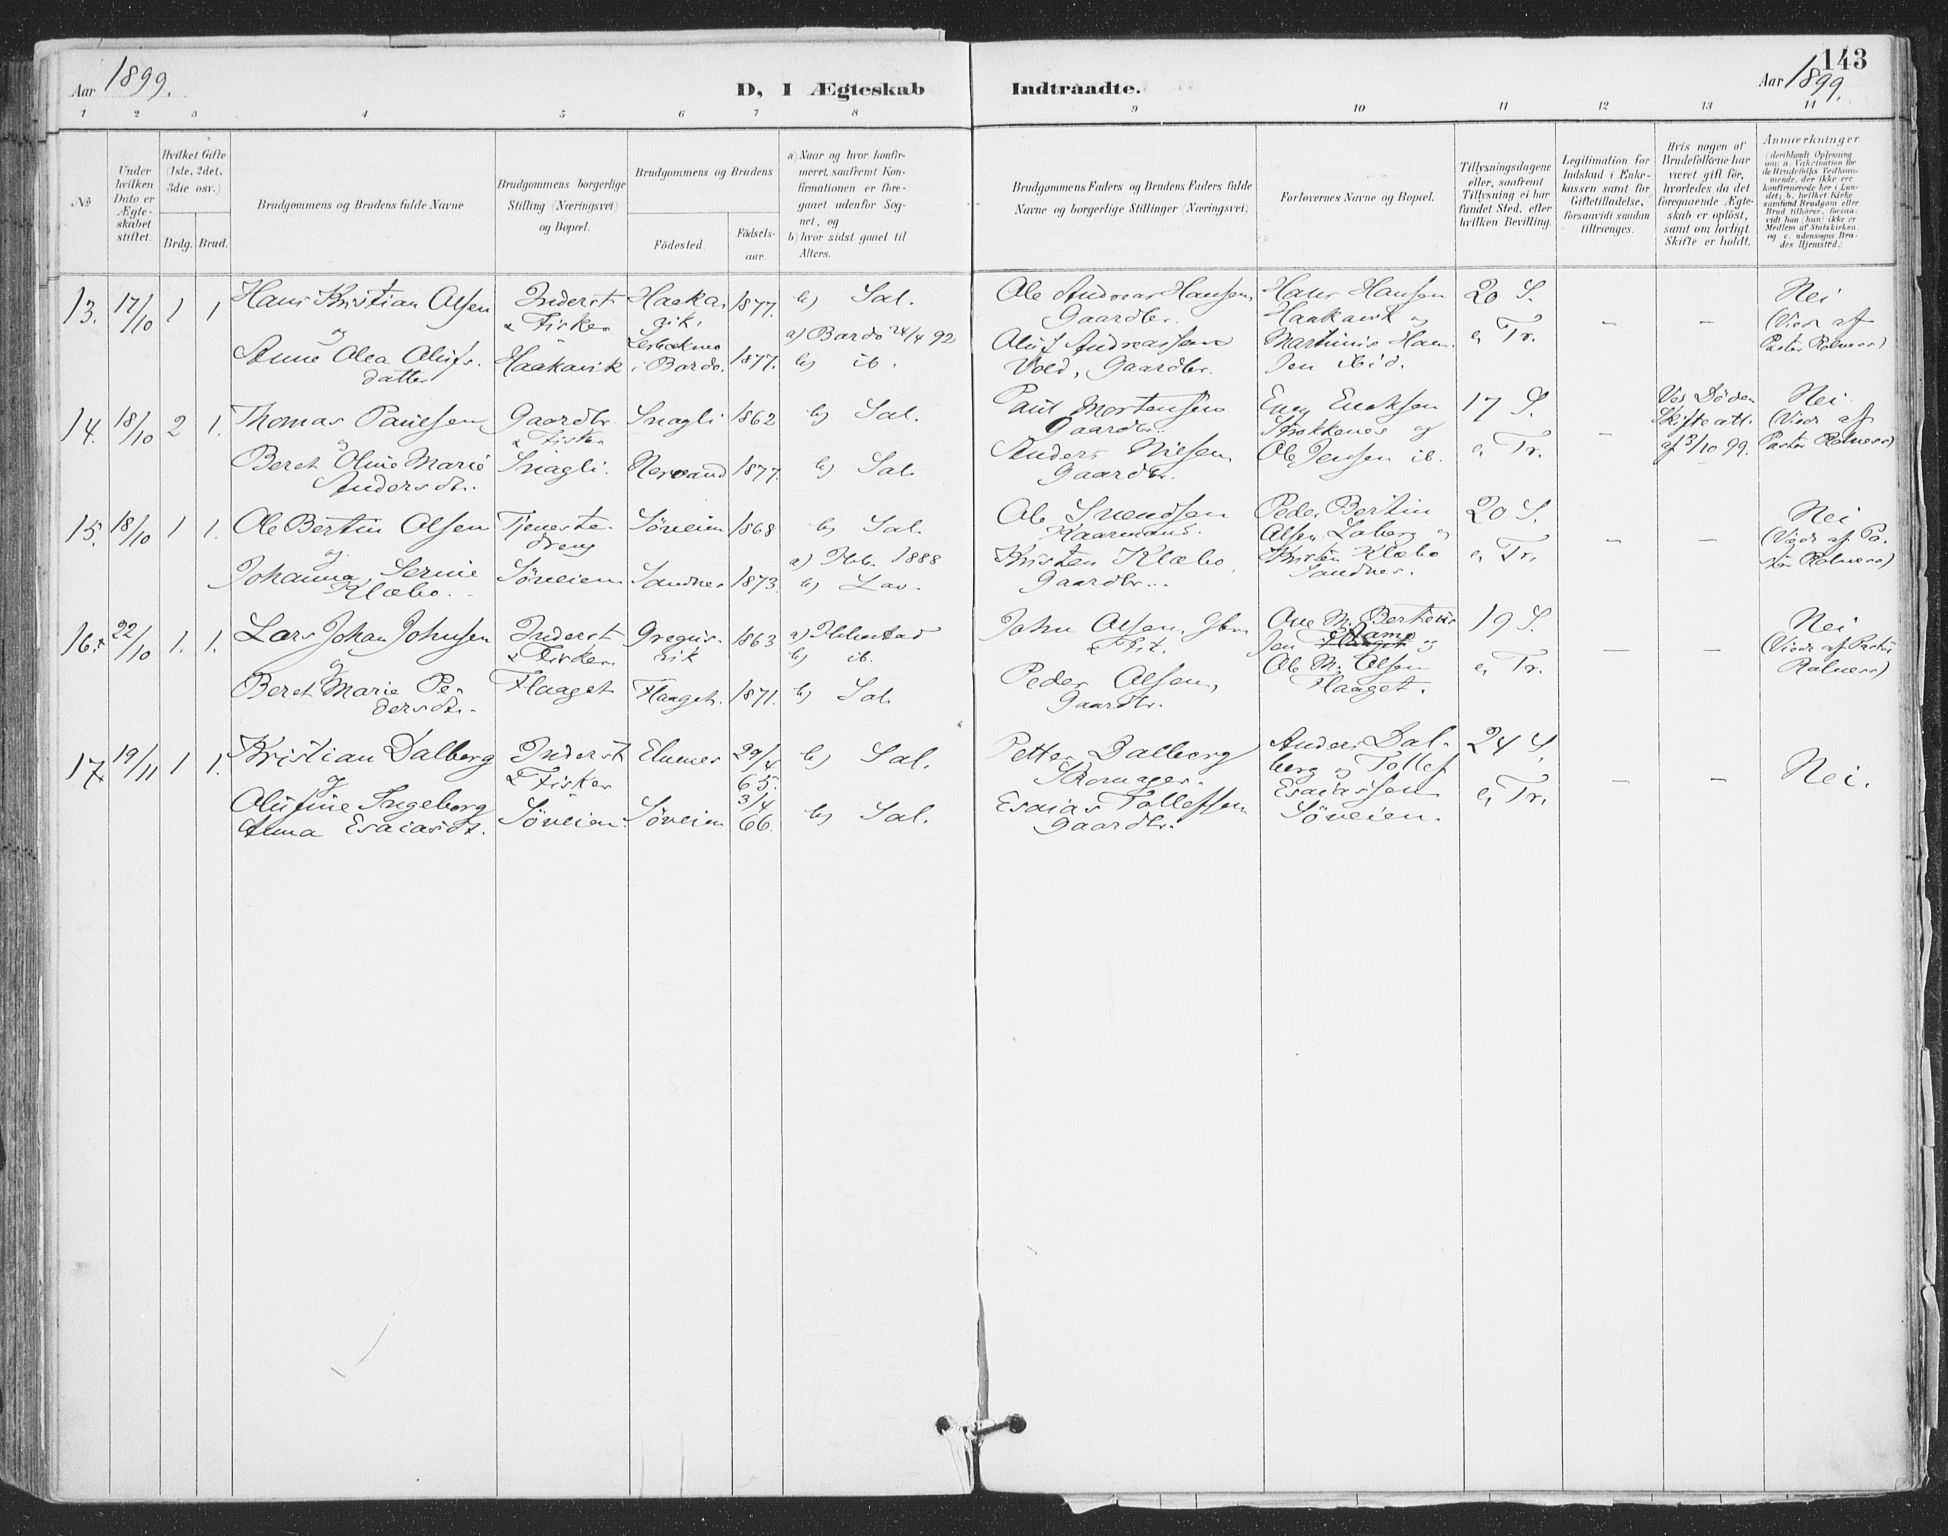 143
Aar 1899.
D, I Ægteskab Indtraadte.
Aar 1899.
1 2 3 4 5 6 7 8 9 10 11 12 13 14
No
Under hvilken Dato er Ægteskabet stiftet.
Hvilket Gifte (1ste, 2det, 3die osv.)
Brdg. Brud.
Brudgommens og Brudens fulde Navne
Brudgommens borgerlige Stilling (Næringsvei) og Bopæl.
Brudgommens og Brudens
Födested.
Födselsaar.
a) Naar og hvor konfirmeret, saafremt Konfirmationen er foregaaet udenfor Sognet, og
b) hvor sidst gaaet til Alters.
Brudgommens Faders og Brudens Faders fulde Navne og borgerlige Stillinger (Næringsvei)
Forlovernes Navne og Bopæl.
Tillysningsdagene eller, saafremt Tillysning ei har fundet Sted, efter hvilken Bevilling.
Legitimation for Indskud i Enkekassen samt for Giftetilladelse, forsaavidt saadan tiltrænges.
Hvis nogen af Brudefolkene har været gift før, hvorledes da det foregaaende Ægteskab er oplöst, samt om lovligt Skifte er holdt.
Anmærkninger
(deriblandt Oplysning om: a. Vaksination for de Brudefolks Vedkommende, der ikke ere konfirmerede her i Landet; b. hvilket Kirkesamfund Brudgom eller Brud tilhörer, forsaavidt han (hun) ikke er Medlem af Statskirken, og c. udensogns Brudes Hjemsted.)
13. 17/10 1 1 Hans Kristian Olsen Inderst Haakavik 1877. b) Sal. Ole Andreas Hansen Hans Hansen 20 S. – – Nei
og & Fisker Gaardbr. Haakavik og (Viede af
Anne Olea Olufsdatter Haakavik i Bardo. 1877. a) Bardo 24/4 92 Oluf Andreassen Martinus Hansen ibid. e. Tr. Pastor Rolness)
b) ib. Vold, Gaardbr.
14. 18/10 2 1. Thomas Paulsen Gaardbr. Snagli 1862 b) Sal. Paul Mortensen Eriksen 17 S. – Ved Döden Nei
og & Fisker Gaardbr. Strokkenes og Skifteatt. (Viede af
Beret Oline Marie Snagli. Nervand 1877. b) Sal. Anders Nilsen Ole Jensen ib. e. Tr. af 3/10 99. Pastor Rolness)
Andersdt. Gaardbr.
15. 18/10 1 1. Ole Bertin Olsen Tjenestedreng Söveien 1868 b) Sal. Ole Svendsen Peder Bertin 20 S. – – Nei
og Kaarmand. Olsen Laberg og (Viede af Pastor Rolness)
Johanna Serine Söveien Sandnes 1873. a) Ibb. 1888 Kristen Klæbo. Kristen Klæbo e. Tr.
Klæbo. b) Lav. Gaardbr. Sandnes.
16. 22/10 1. 1. Lars Johan Johnsen Inderst Gregusvik 1863 a) Ibbestad John Olsen, Gbr. Ove M. Bertheussen 19 S. – – Nei
og & Fisker b) ib. & Fisk. og (Viede af Pastor
Beret Marie Pedersdt. Flaaget Flaaget. 1871. b) Sal. Peder Olsen, Ole M. Olsen e. Tr. Rolness)
Gaardbr. Flaaget.
17. 19/11 1 1. Kristian Dalberg Inderst Elvenes 29/4 65. b) Sal. Petter Dalberg Anders Dalberg og Tollef 24 S. – – Nei.
og & Fisker Skomager.
Olufine Ingeborg Söveien. Söveien 3/4 66. b) Sal. Esaias Tollefsen Esaiassen e. Tr.
Anna Esaiasdt. Gaardbr. Söveien.